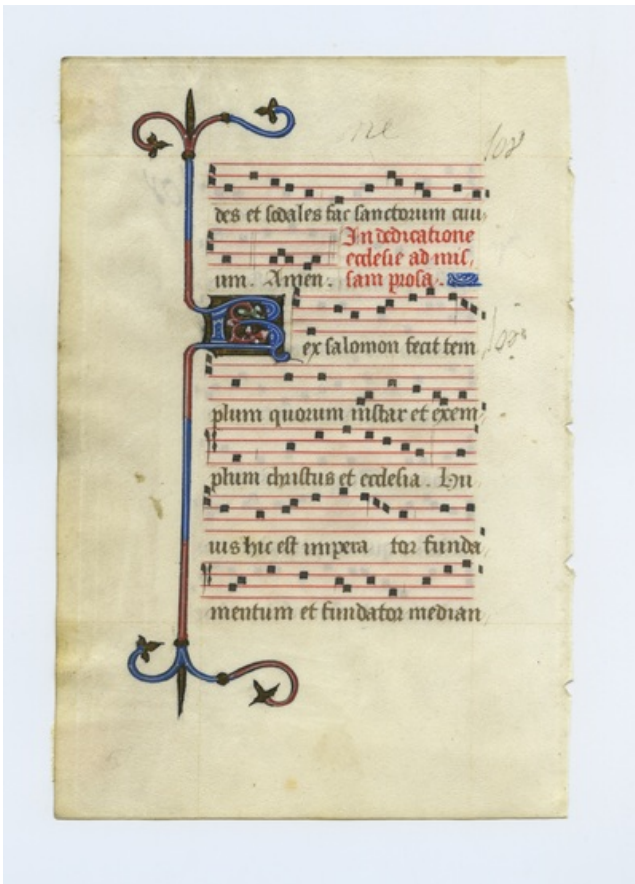 des et sodales fac sanctorum cui
um. Amen. In dedicatione
ecclesie ad mis
sam prosa.
Rex salomon fecit tem
plum quorum instar et exem
plum christus et ecclesia. Hu
ius hic est impera tor funda
mentum et fundator median